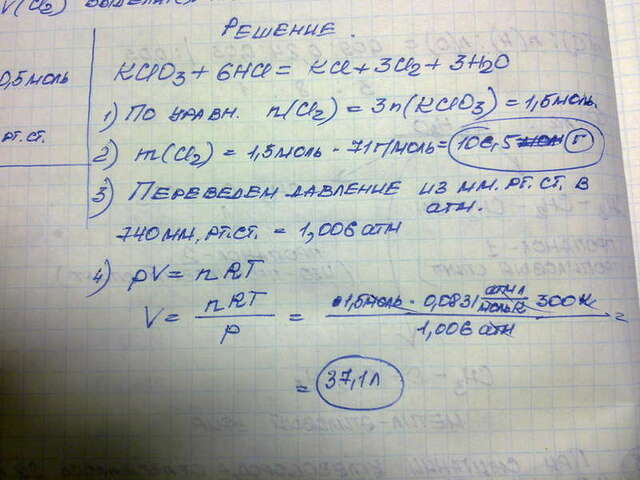 V(Cl2)
РЕШЕНИЕ.
0,5 моль
KClO3 + 6HCl = KCl + 3Cl2 + 3H2O
1) ПО УРАВН. n(Cl2) = 3n(KClO3) = 1,5моль.
РТ.СТ.
2) m(Cl2) = 1,5моль · 71г/моль = 106,5 г
3) ПЕРЕВЕДЕМ ДАВЛЕНИЕ ИЗ ММ. РТ. СТ. В
АТМ.
740 ММ. РТ. СТ. = 1,006 атм
4) pV = nRT
V = nRT / p = 1,5моль · 0,0831 атм л / моль K 300K / 1,006 атм =
= 37,1 л